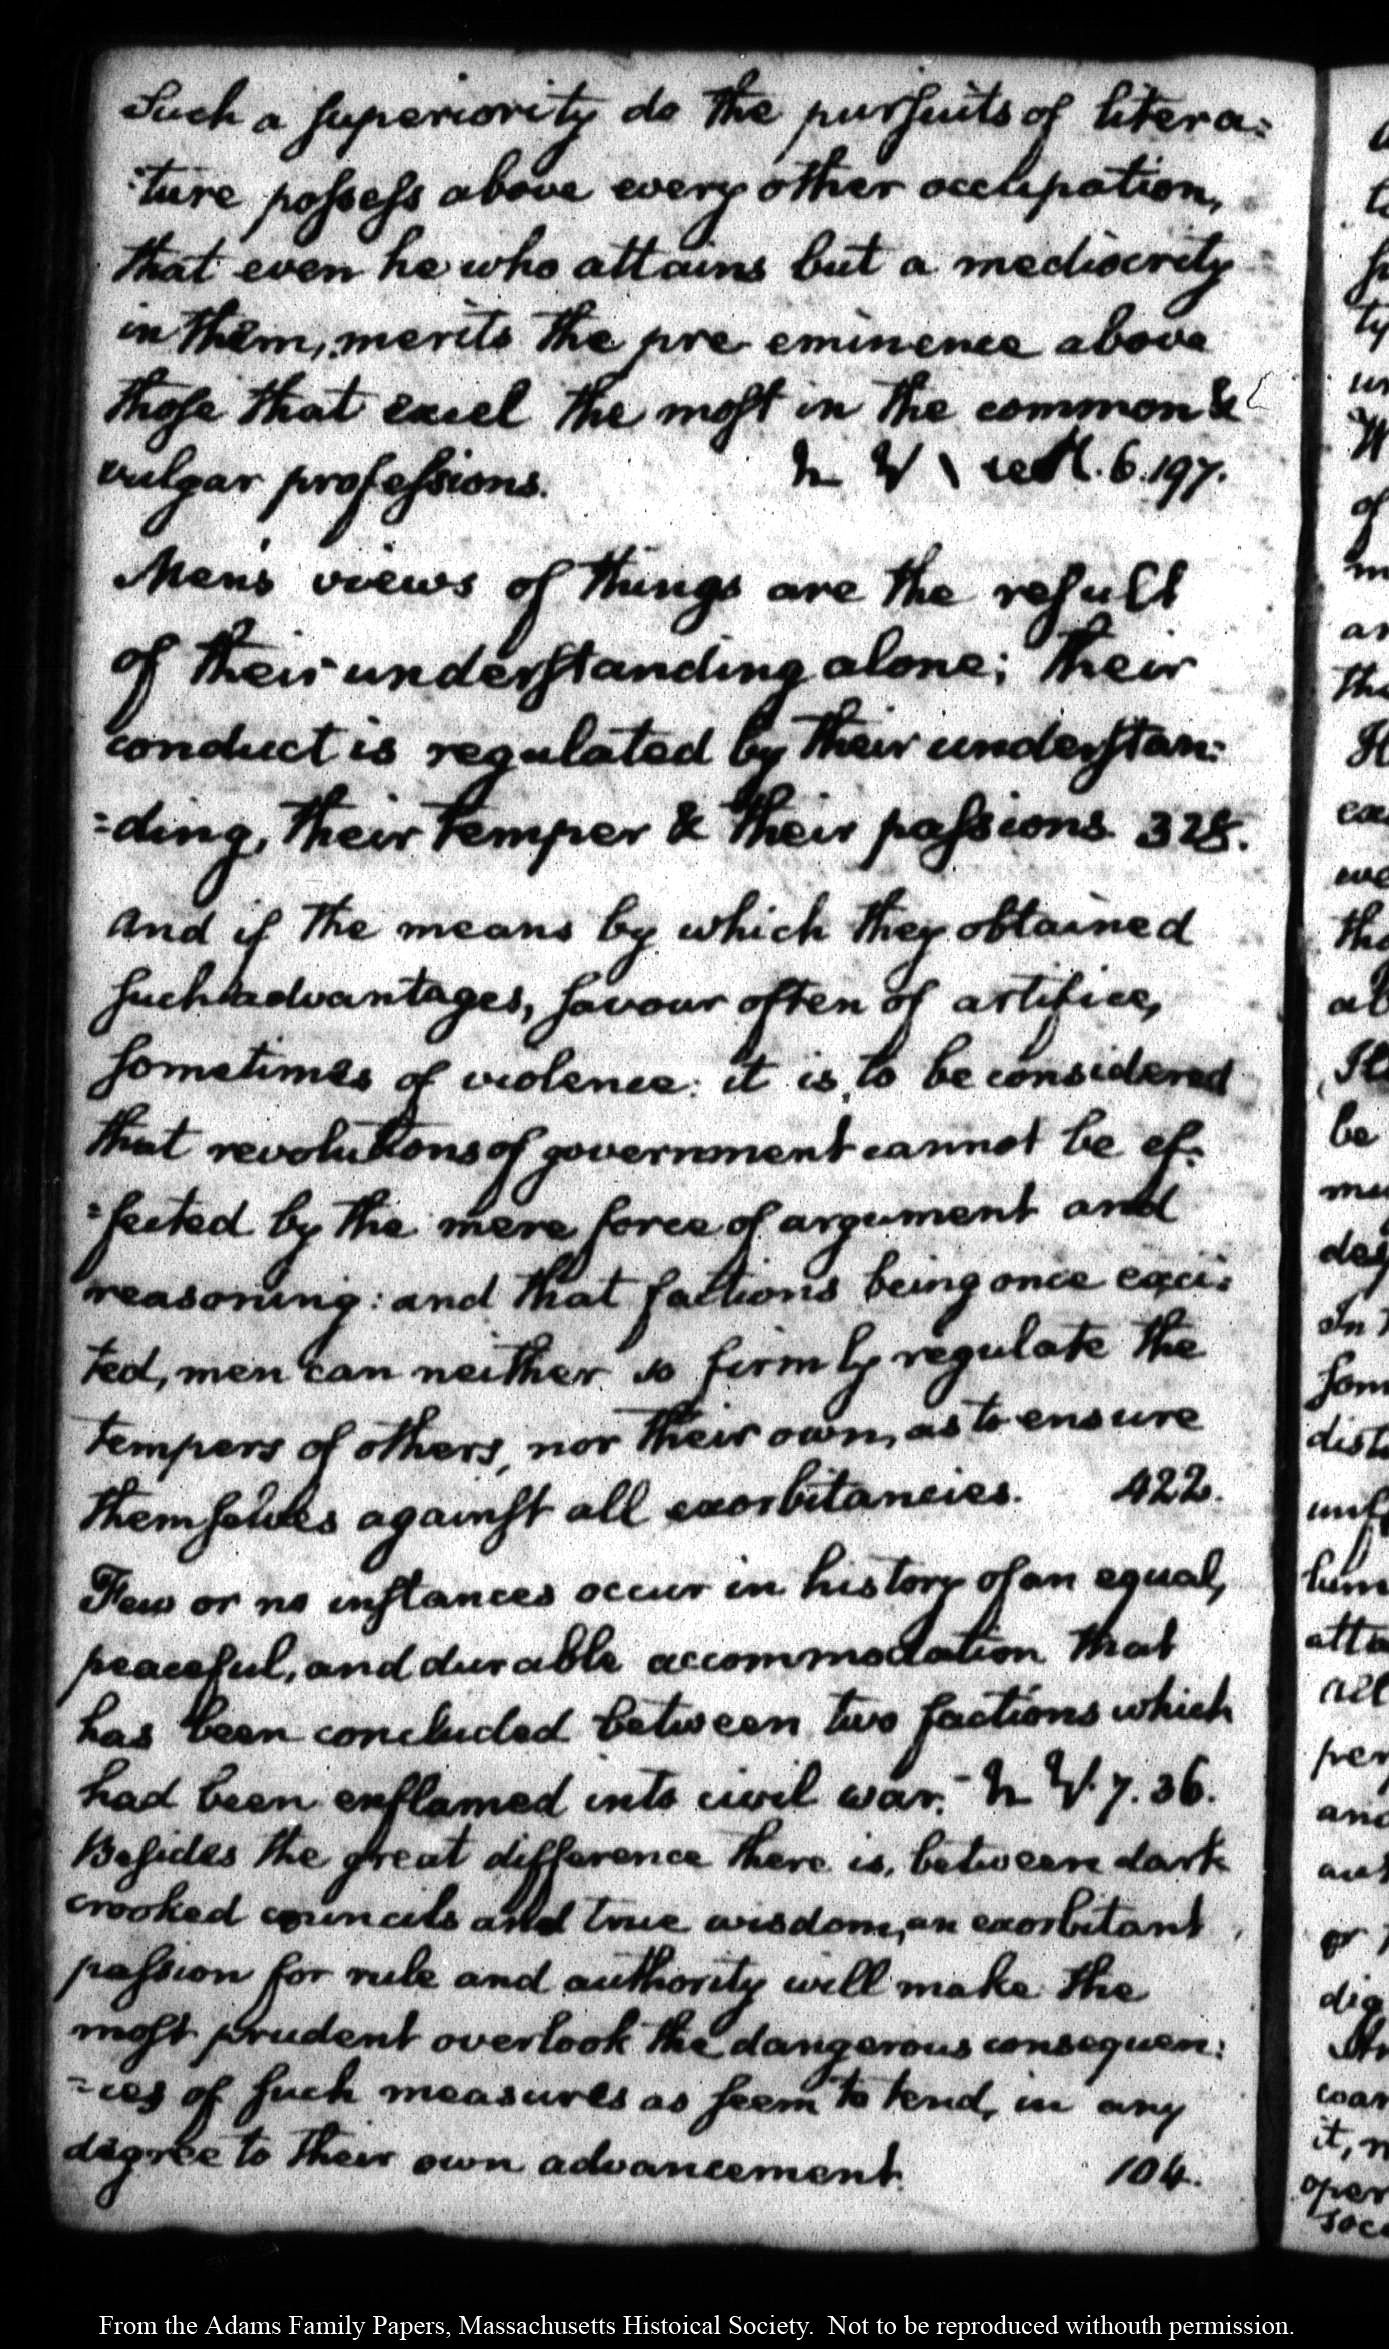 Such a superiority do the pursuits of litera=
=ture possess above every other occupation,
that even he who attains but a mediocrity
in them, merits the pre eminence above
those that excel the most in the common &
vulgar professions. 6. 197.
Men's views of things are the result
of their understanding alone; their
conduct is regulated by their understan=
=ding, their temper & their passions 328.
And if the means by which they obtained
such advantages, savour often of artifice,
sometimes of violence: it is to be considered
that revolutions of government cannot be ef=
=fected by the mere force of argument and
reasoning: and that factions being once exci=
ted, men can neither so firmly regulate the
tempers of others, nor their own, as to ensure
themselves against all exorbitancies. 422.
Few or no instances occur in history of an equal,
peaceful, and durable accommodation that
has been concluded between two factions which
had been enflamed into civil war. 7. 36.
Besides the great difference there is, between dark
crooked councils and true wisdom, an exorbitant
passion for rule and authority will make the
most prudent overlook the dangerous consequen=
=ces of such measures as seem to tend, in any
degree to their own advancement. 104.
From the Adams Family Papers, Massachusetts Histoical Society. Not to be reproduced withouth permission.